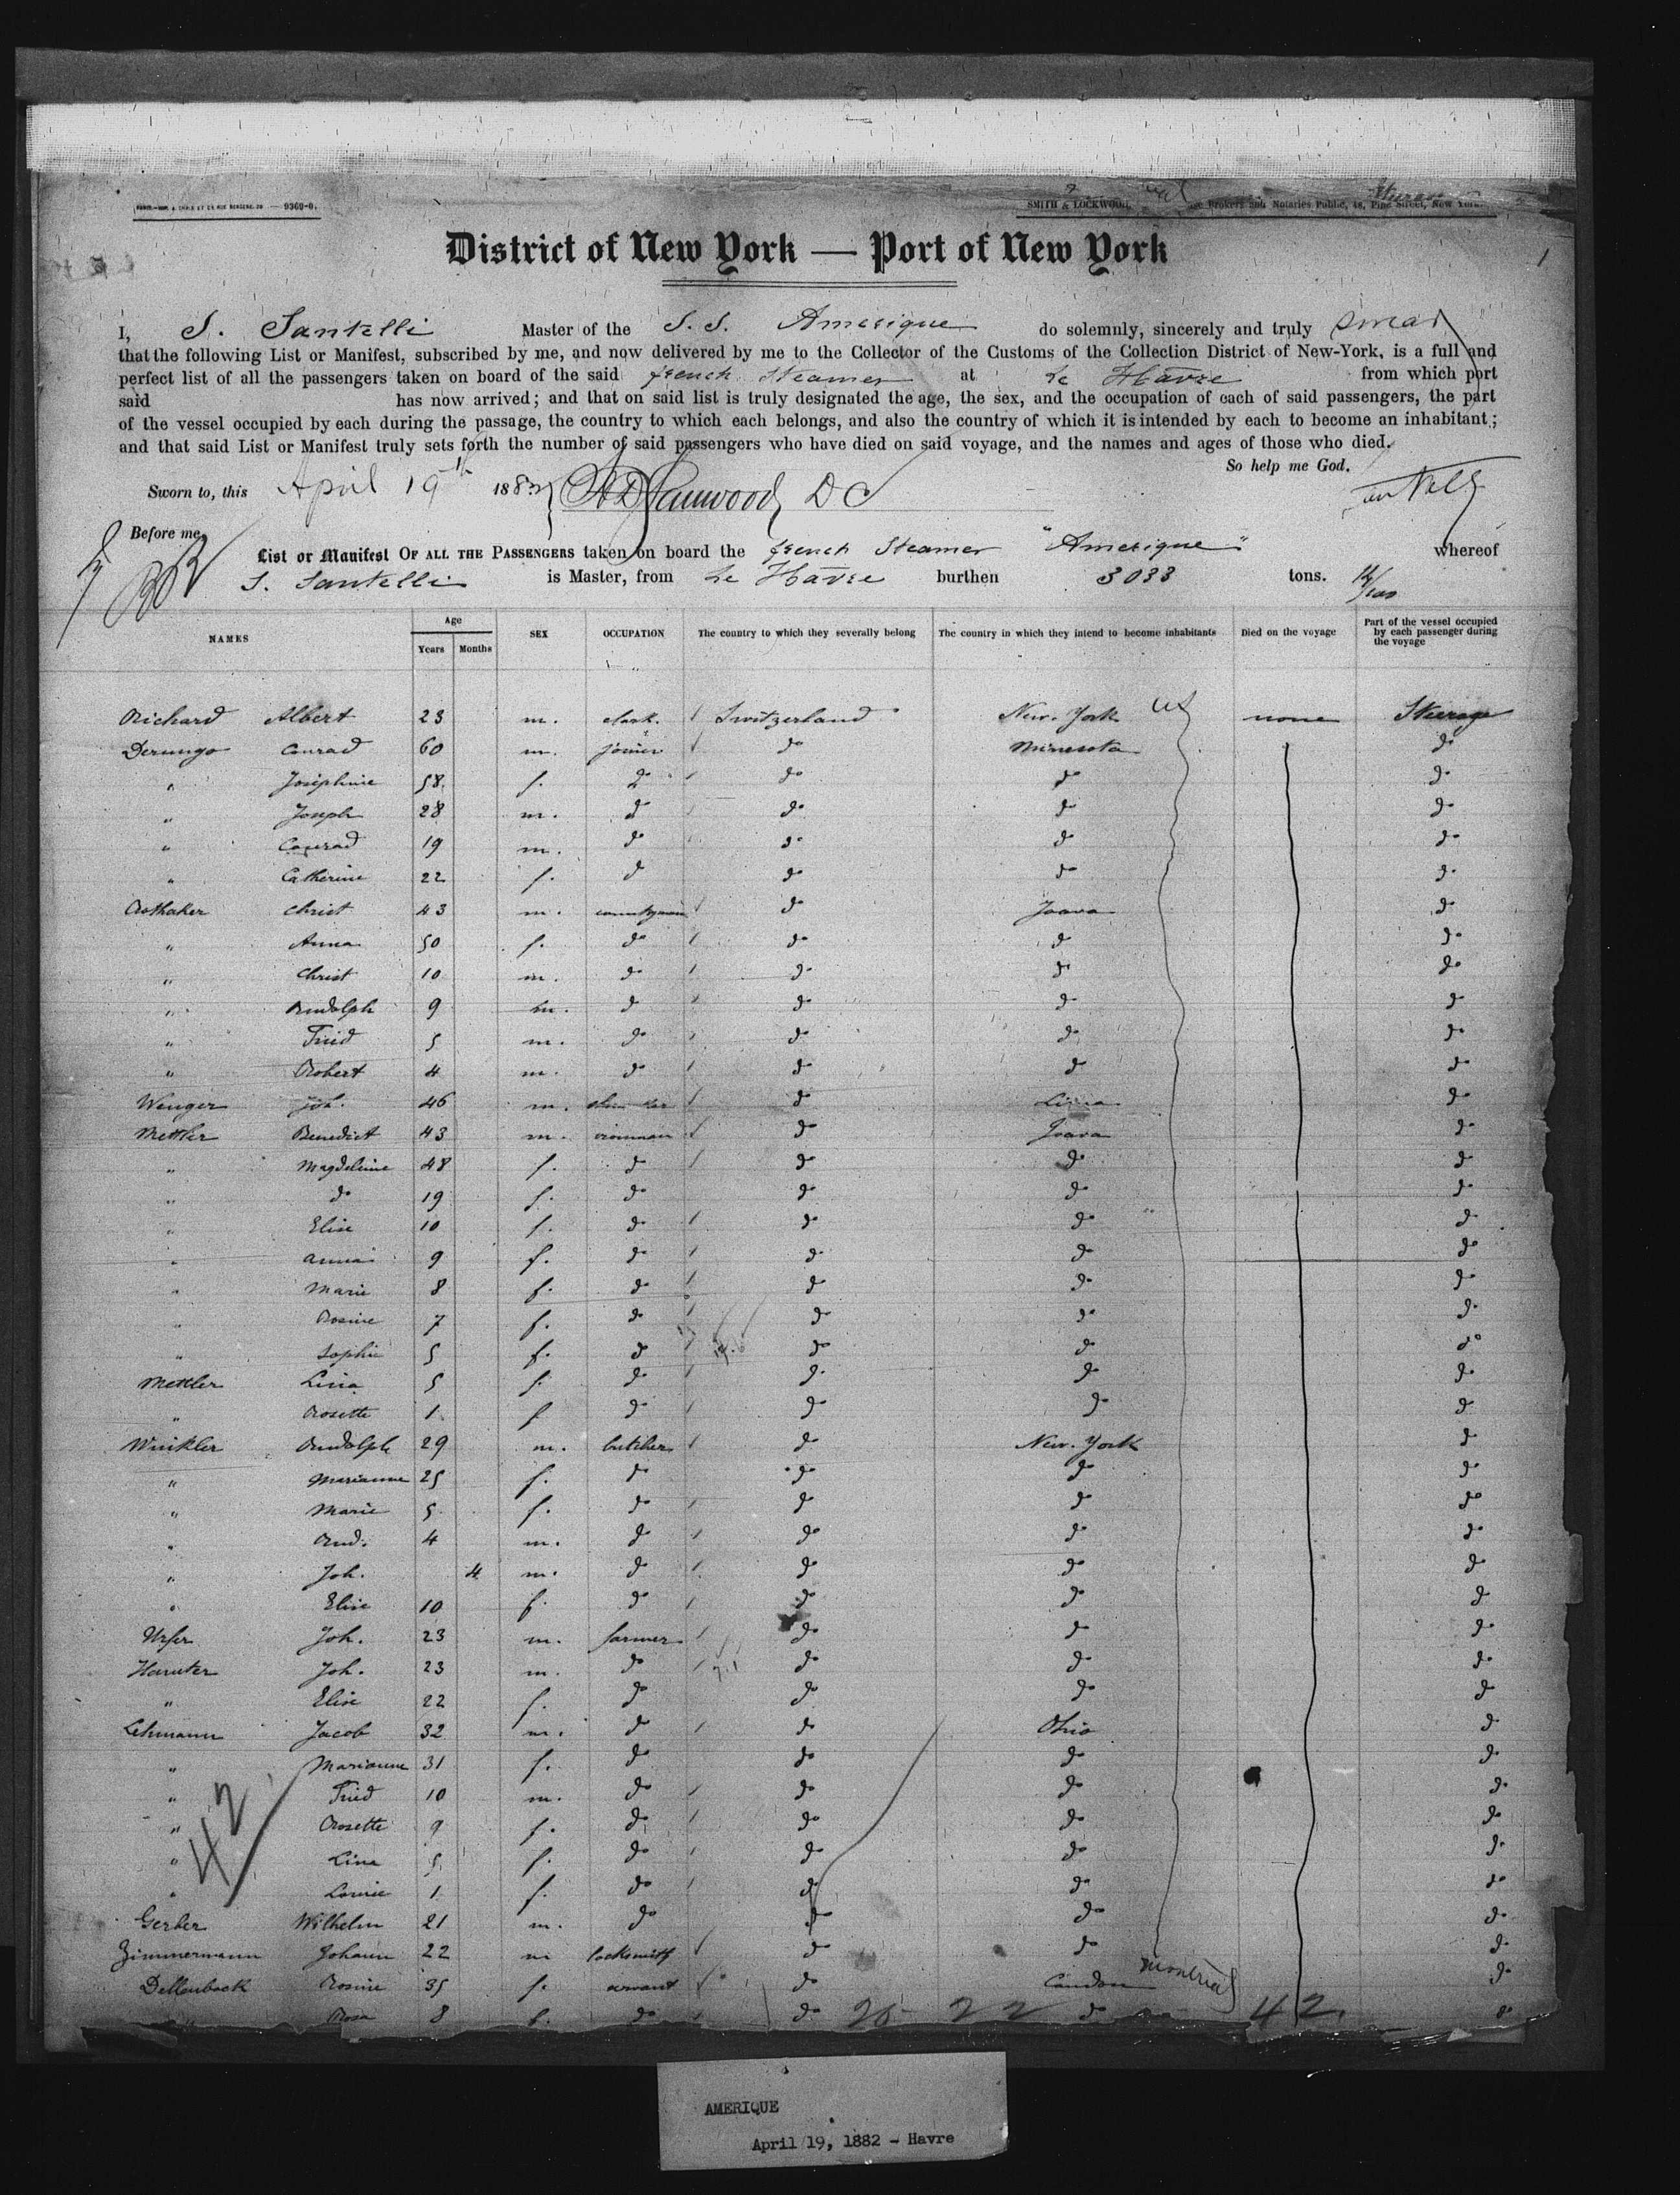 9369-0.
SMITH & LOCKWOOD, Brokers and Notaries Public, 48, Pine Street, New York.
District of New York — Port of New York
1
I, S. Santelli Master of the S.S. Amerique do solemnly, sincerely and truly swear
that the following List or Manifest, subscribed by me, and now delivered by me to the Collector of the Customs of the Collection District of New-York, is a full and
perfect list of all the passengers taken on board of the said french Steamer at Le Havre from which port
said has now arrived; and that on said list is truly designated the age, the sex, and the occupation of each of said passengers, the part
of the vessel occupied by each during the passage, the country to which each belongs, and also the country of which it is intended by each to become an inhabitant;
and that said List or Manifest truly sets forth the number of said passengers who have died on said voyage, and the names and ages of those who died.
So help me God.
Sworn to, this April 19th 1882 DC
Before me,
List or Manifest OF ALL THE PASSENGERS taken on board the french Steamer "Amerique" whereof
S. Santelli is Master, from Le Havre burthen 3033 tons. 14/100
NAMES Age Years Months SEX OCCUPATION The country to which they severally belong The country in which they intend to become inhabitants Died on the voyage Part of the vessel occupied by each passenger during the voyage
Richard Albert 23 m. clark. Switzerland New. York us none Steerage
Derungo Conrad 60 m. joiner do Minnesota do
" Josephine 58 f. do do do do
" Joseph 28 m. do do do do
" Conrad 19 m. do do do do
" Catherine 22 f. do do do do
Rothaker Christ 43 m. countryman do Joava do
" Anna 50 f. do do do do
" Christ 10 m. do do do do
" Rudolph 9 m. do do do do
" Fried 5 m. do do do do
" Robert 4 m. do do do do
Wenger Joh. 46 m. do do
Mettler Benedict 43 m. do Joava do
" Magdeleine 48 f. do do do do
" do 19 f. do do do do
" Elise 10 f. do do do do
" Anna 9 f. do do do do
" Marie 8 f. do do do do
" Rosine 7 f. do do do do
" Sophie 5 f. do do do do
Mettler Lina 5 f. do do do do
" Rosette 1 f do do do do
Winkler Rudolph 29 m. butcher do New. York do
" Marianne 25 f. do do do do
" Marie 5 f. do do do do
" Rud. 4 m. do do do do
" Joh. 4 m. do do do do
" Elise 10 f. do do do do
Urfer Joh. 23 m. farmer do do do
Hamter Joh. 23 m. do do do do
" Elise 22 f. do do do do
Lehmann Jacob 32 m. do do Ohio do
" Marianne 31 f. do do do do
" Fried 10 m. do do do do
" Rosette 9 f. do do do do
" Line 5 f. do do do do
" Louise 1 f. do do do do
42
Gerber Wilhelm 21 m. do do do do
Zimmermann Johann 22 m locksmith do do do
Dellenback Rosine 35 f. servant do Montreal do
" Rosa 8 f. do do 20 22 do 42. do
AMERIQUE
April 19, 1882 - Havre